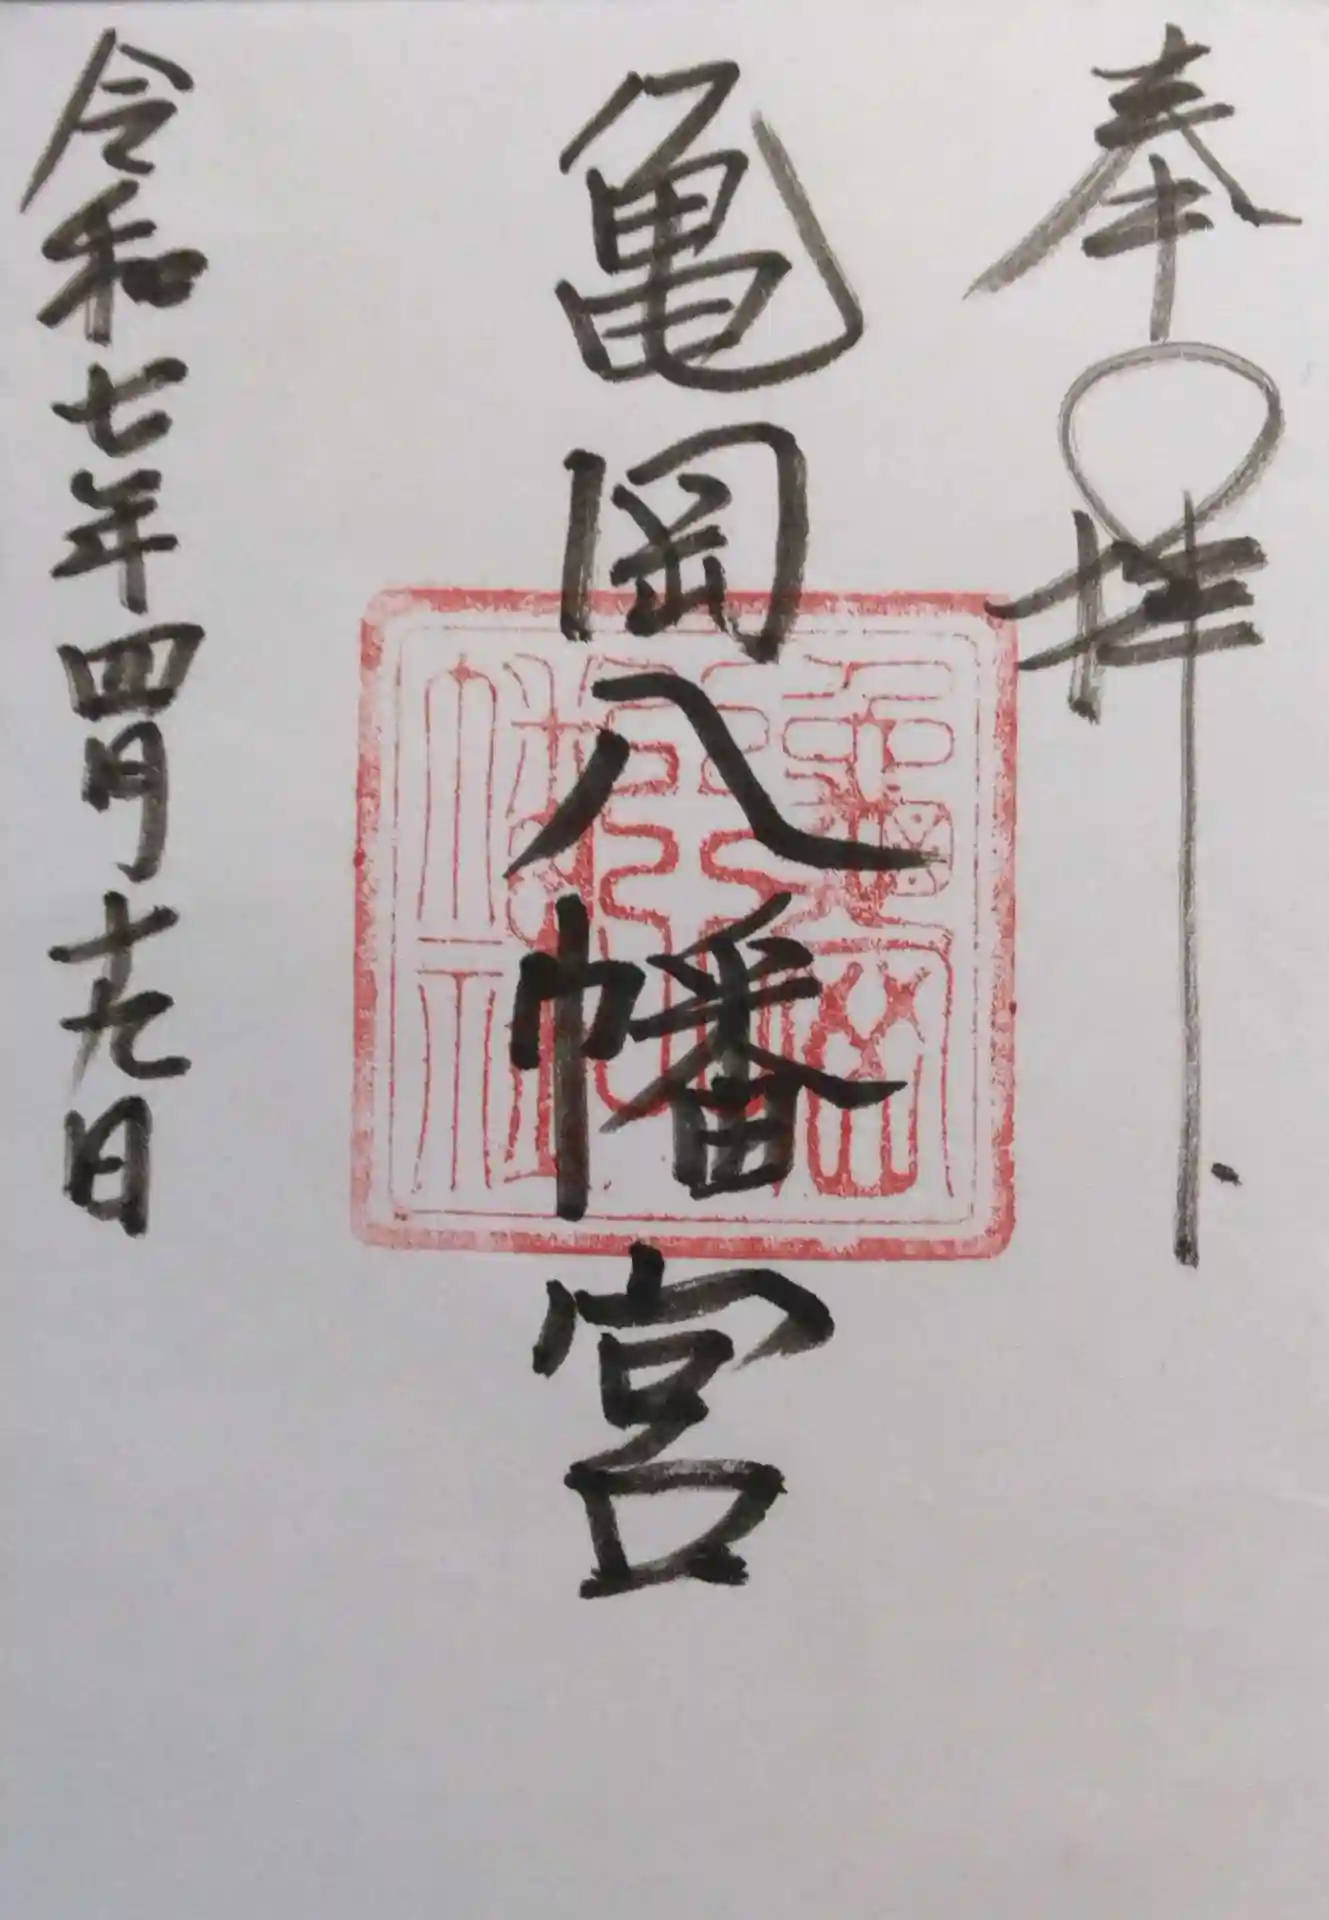 奉拝
亀岡八幡宮
令和七年四月十九日